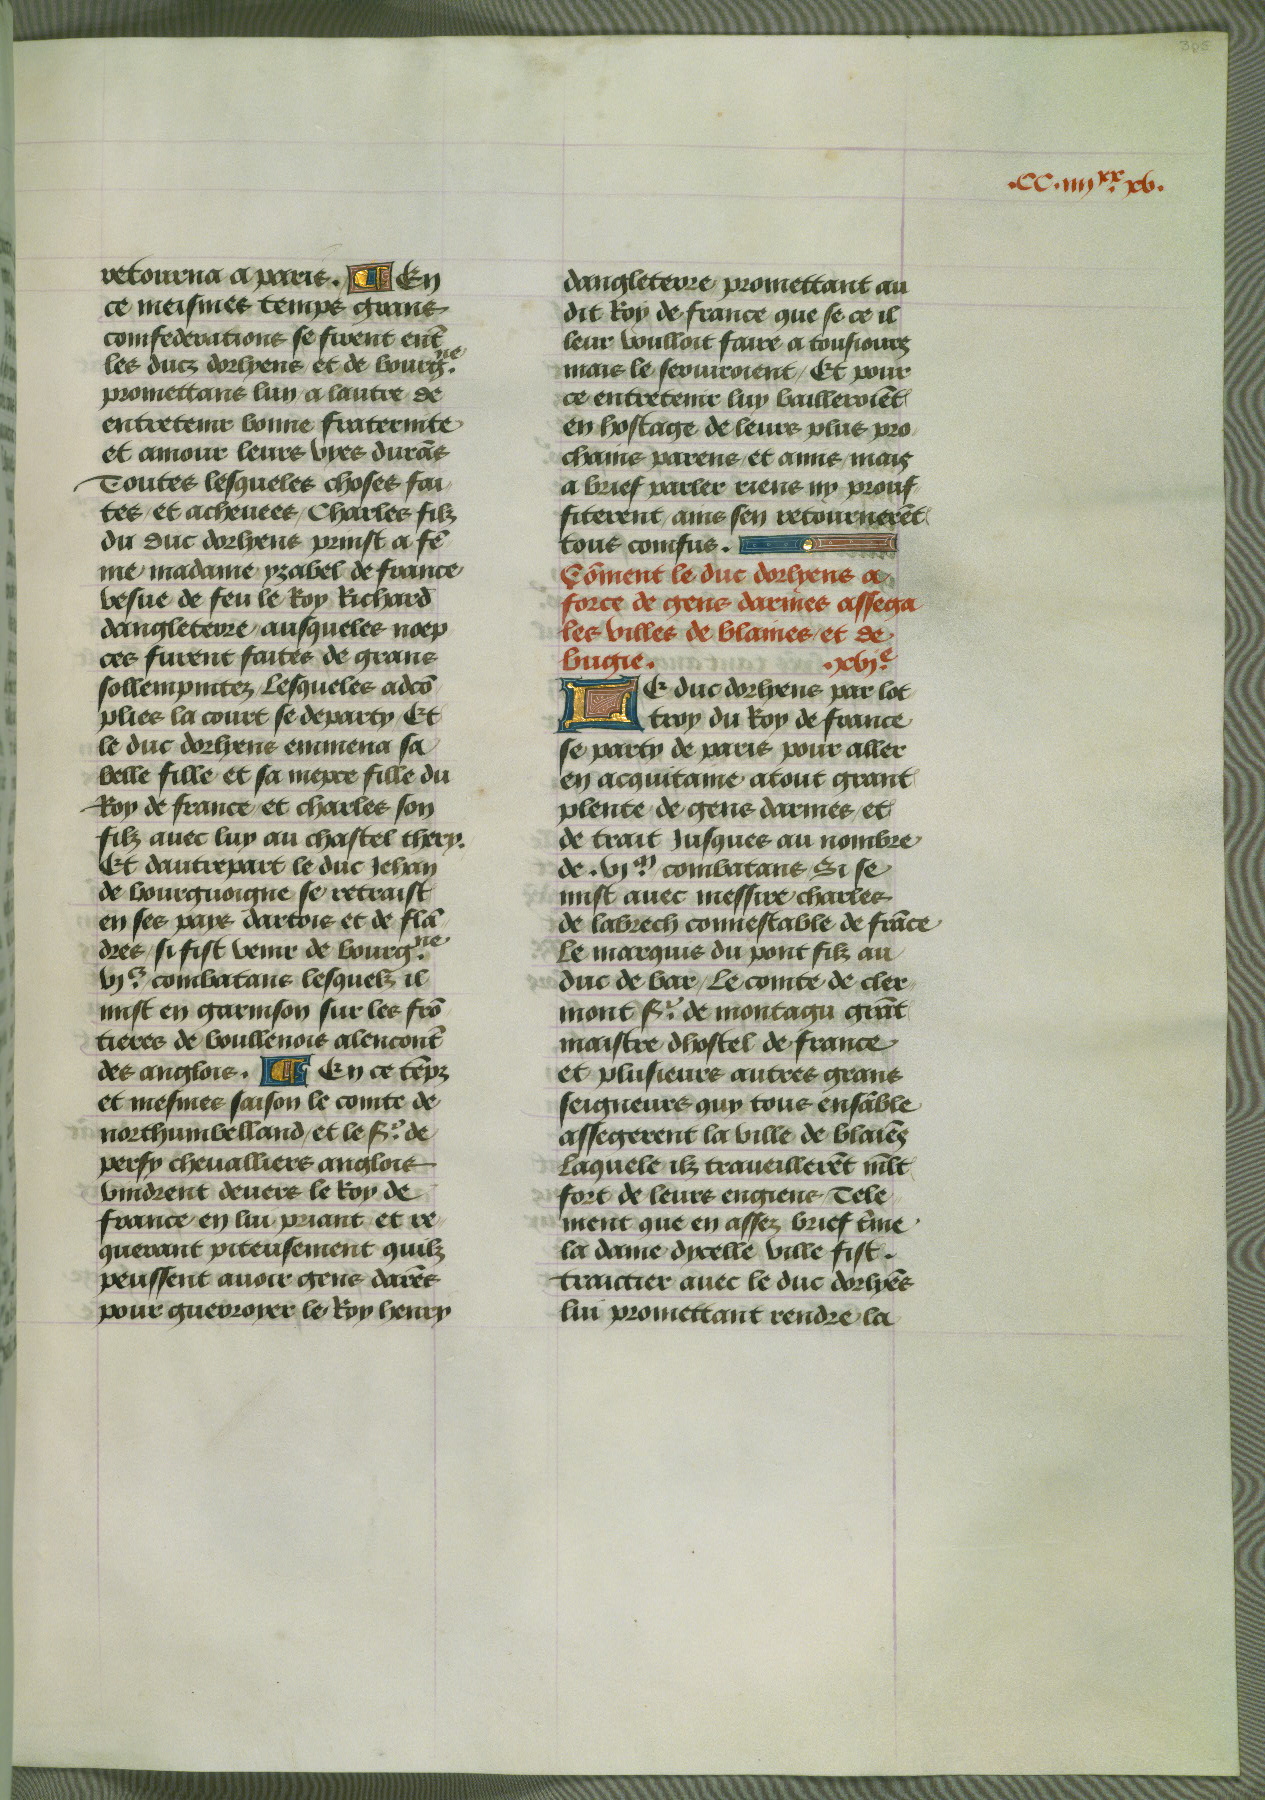 305
.CC.iiijxx.xv.
retourna a paris. En
ce meismes temps grans
comfederations se firent entͤ
les ducz dorlyens et de bourg.ne
promettans luy a lautre de
entretenir bonne fraternite
et amour leurs vyes durās
Toutes lesqueles choses fai
tes et acheuees Charles filz
du duc dorlyens prinst a fē
me madame yzabel de france
vesue de feu le Roy Richard
dangleterre ausqueles noep
ces furent faites de grans
sollempnitez Lesqueles adcō
plies la court se departy Et
le duc dorlyens emmena sa
belle fille et sa niepce fille du
Roy de france et charles son
filz auec luy au chastel thery.
Et dautrepart le duc Jehan
de bourguoigne se retraist
en ses pays dartois et de flā
dres / si fist venir de bourg.ne
vj.c combatans lesquelz il
mist en garnison sur les frō
tieres de boullenois alencont̄
des anglois. En ce tēpz
et mesmes saison le comte de
northumbelland et le Sr. de
persy cheualliers anglois
vindrent deuers le Roy de
france en lui priant et re
querant piteusement quilz
peussent auoir gens darēs
pour guerroyer le Roy henry
dangleterre promettant au
dit Roy de france que se ce il
leur voulloit faire a tousiours
mais le seruiroient / Et pour
ce entretenir luy bailleroiēt
en hostage de leurs plus pro
chains parens et amis / mais
a brief parler riens ny prouf
fiterent / ains sen retournerēt
tous comfus.
Cōment le duc dorlyens a
force de gens darmes assega
les villes de blaines et de
bugie. .xvj.e
LE duc dorlyens par lot
troy du Roy de france
se party de paris pour aller
en acquitaine atout grant
plente de gens darmes et
de trait Jusques au nombre
de .vj.m combatans Si se
mist auec messire charles
de labrech connestable de frāce
Le marquis du pont filz au
duc de bar / Le comte de cler
mont Sr. de montagu grāt
maistre dhostel de france
et plusieurs autres grans
seigneurs quy tous ensāble
assegerent la ville de blaiēs
Laquele ilz traueillerēt mlt̄
fort de leurs engiens Tele
ment que en assez brief t̄me
la dame dycelle ville fist.
traictier auec le duc dorlyēs
lui promettant rendre la